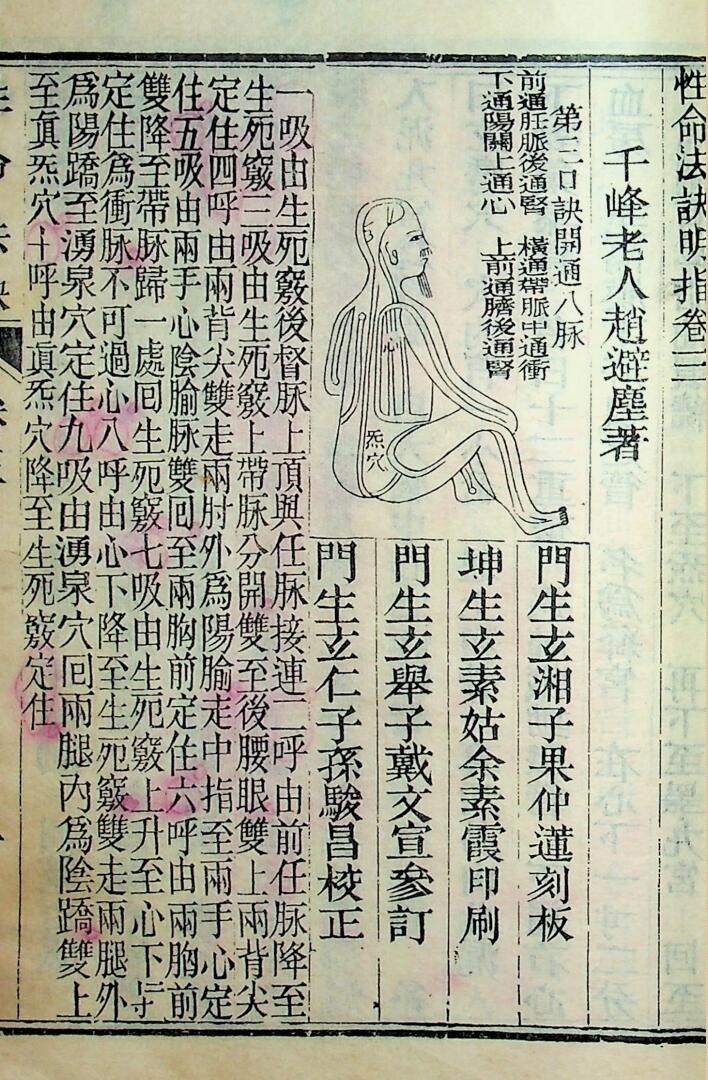 性命法訣明指卷三
千峰老人趙避塵著
第三口訣開通八脉
前通任脈後通腎 橫通帶脈中通衝
下通陽關上通心 上前通臍後通腎
心
炁穴
門生玄湘子果仲蓮刻板
坤生玄素姑余素霞印刷
門生玄舉子戴文宣參訂
門生玄仁子孫駿昌校正
一吸由生死竅後督脉上頂與任脉接連二呼由前任脉降至
生死竅三吸由生死竅上帶脉分開雙至後腰眼雙上兩背尖
定住四呼由兩背尖雙走兩肘外為陽腧走中指至兩手心定
住五吸由兩手心陰腧脉雙回至兩胸前定住六呼由兩胸前
雙降至帶脉歸一處回生死竅七吸由生死竅上升至心下一寸
定住爲衝脉不可過心八呼由心下降至生死竅雙走兩腿外
爲陽蹻至湧泉穴定住九吸由湧泉穴回兩腿內爲陰蹻雙上
至眞炁穴十呼由眞炁穴降至生死竅定住